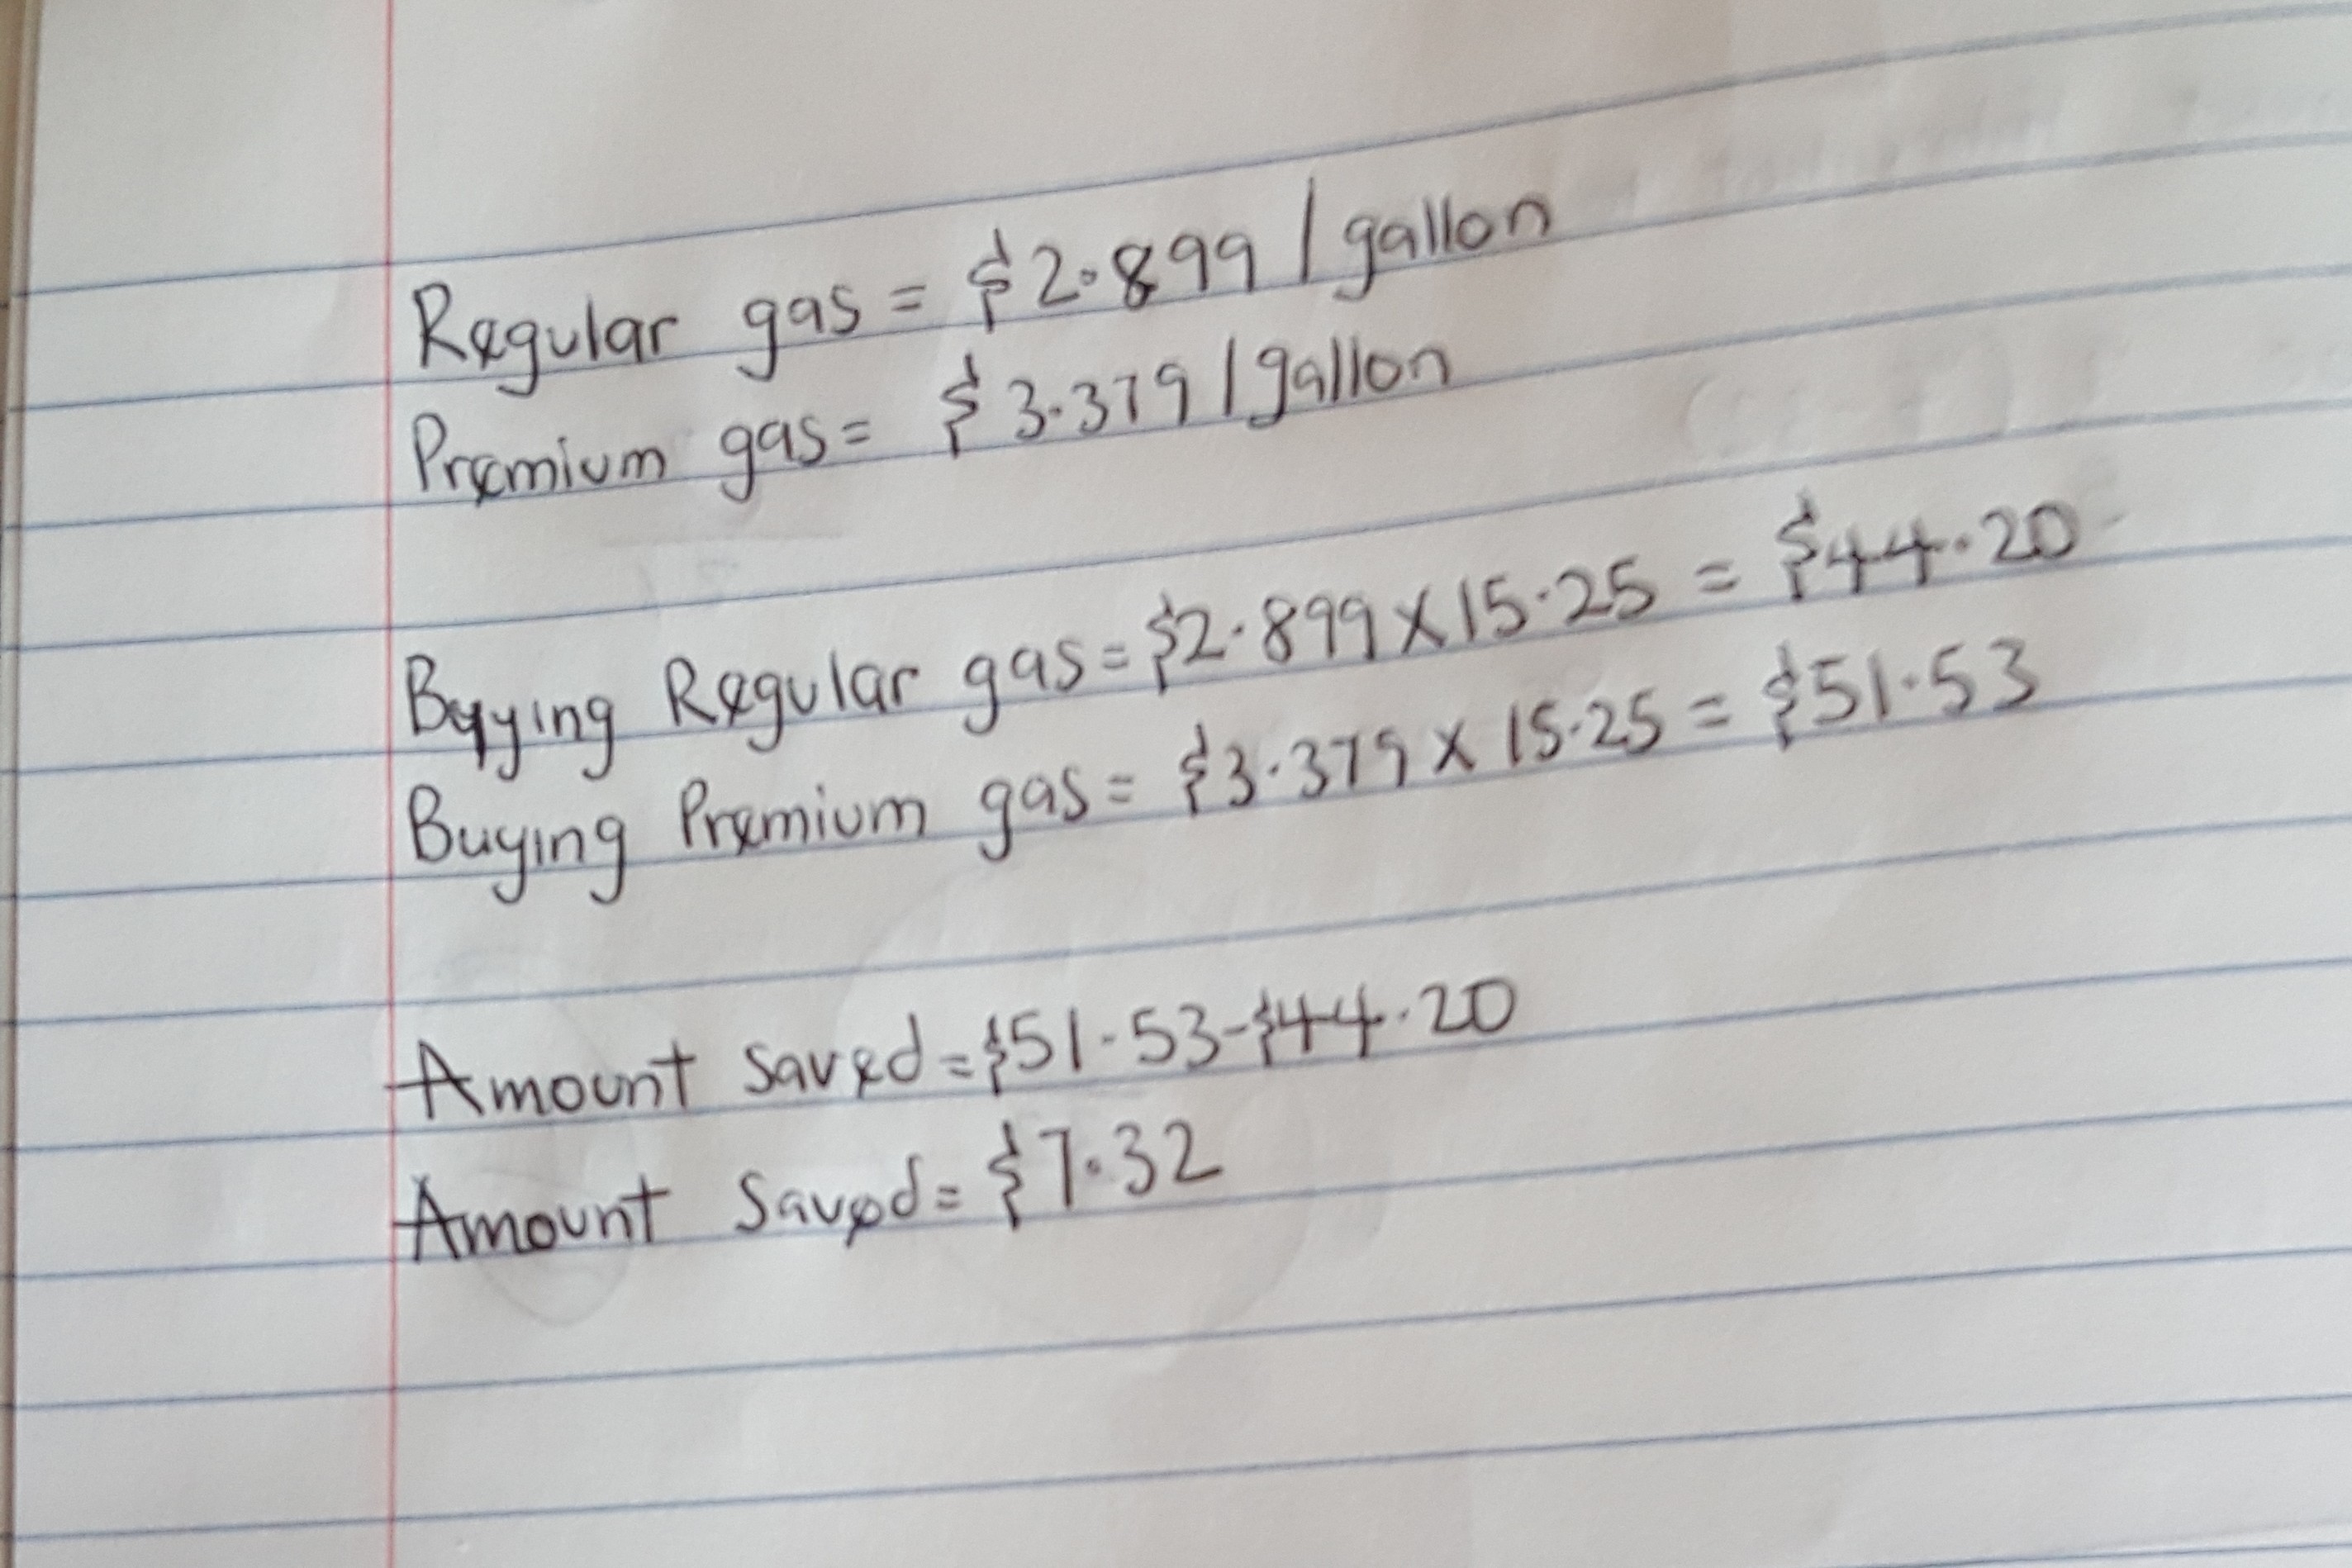 Regular gas = $2.899 / gallon
Premium gas = $3.379 / gallon
Buying Regular gas = $2.899 x 15.25 = $44.20
Buying Premium gas = $3.379 x 15.25 = $51.53
Amount saved = $51.53 - $44.20
Amount Saved = $7.32